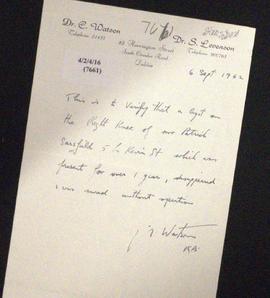 Dr. C. Watson
Telephone 51431
7661
Dr. S. Levenson
Harrington Street
South Circular Road
Dublin
4/2/4/16
(7661)
6 Sept 1962
This is to verify that a cyst on
the Right Knee of Mr Patrick
Sarsfield 5 Kevin St which was
present for over 1 year, disappeared
& was cured without operation
Watson